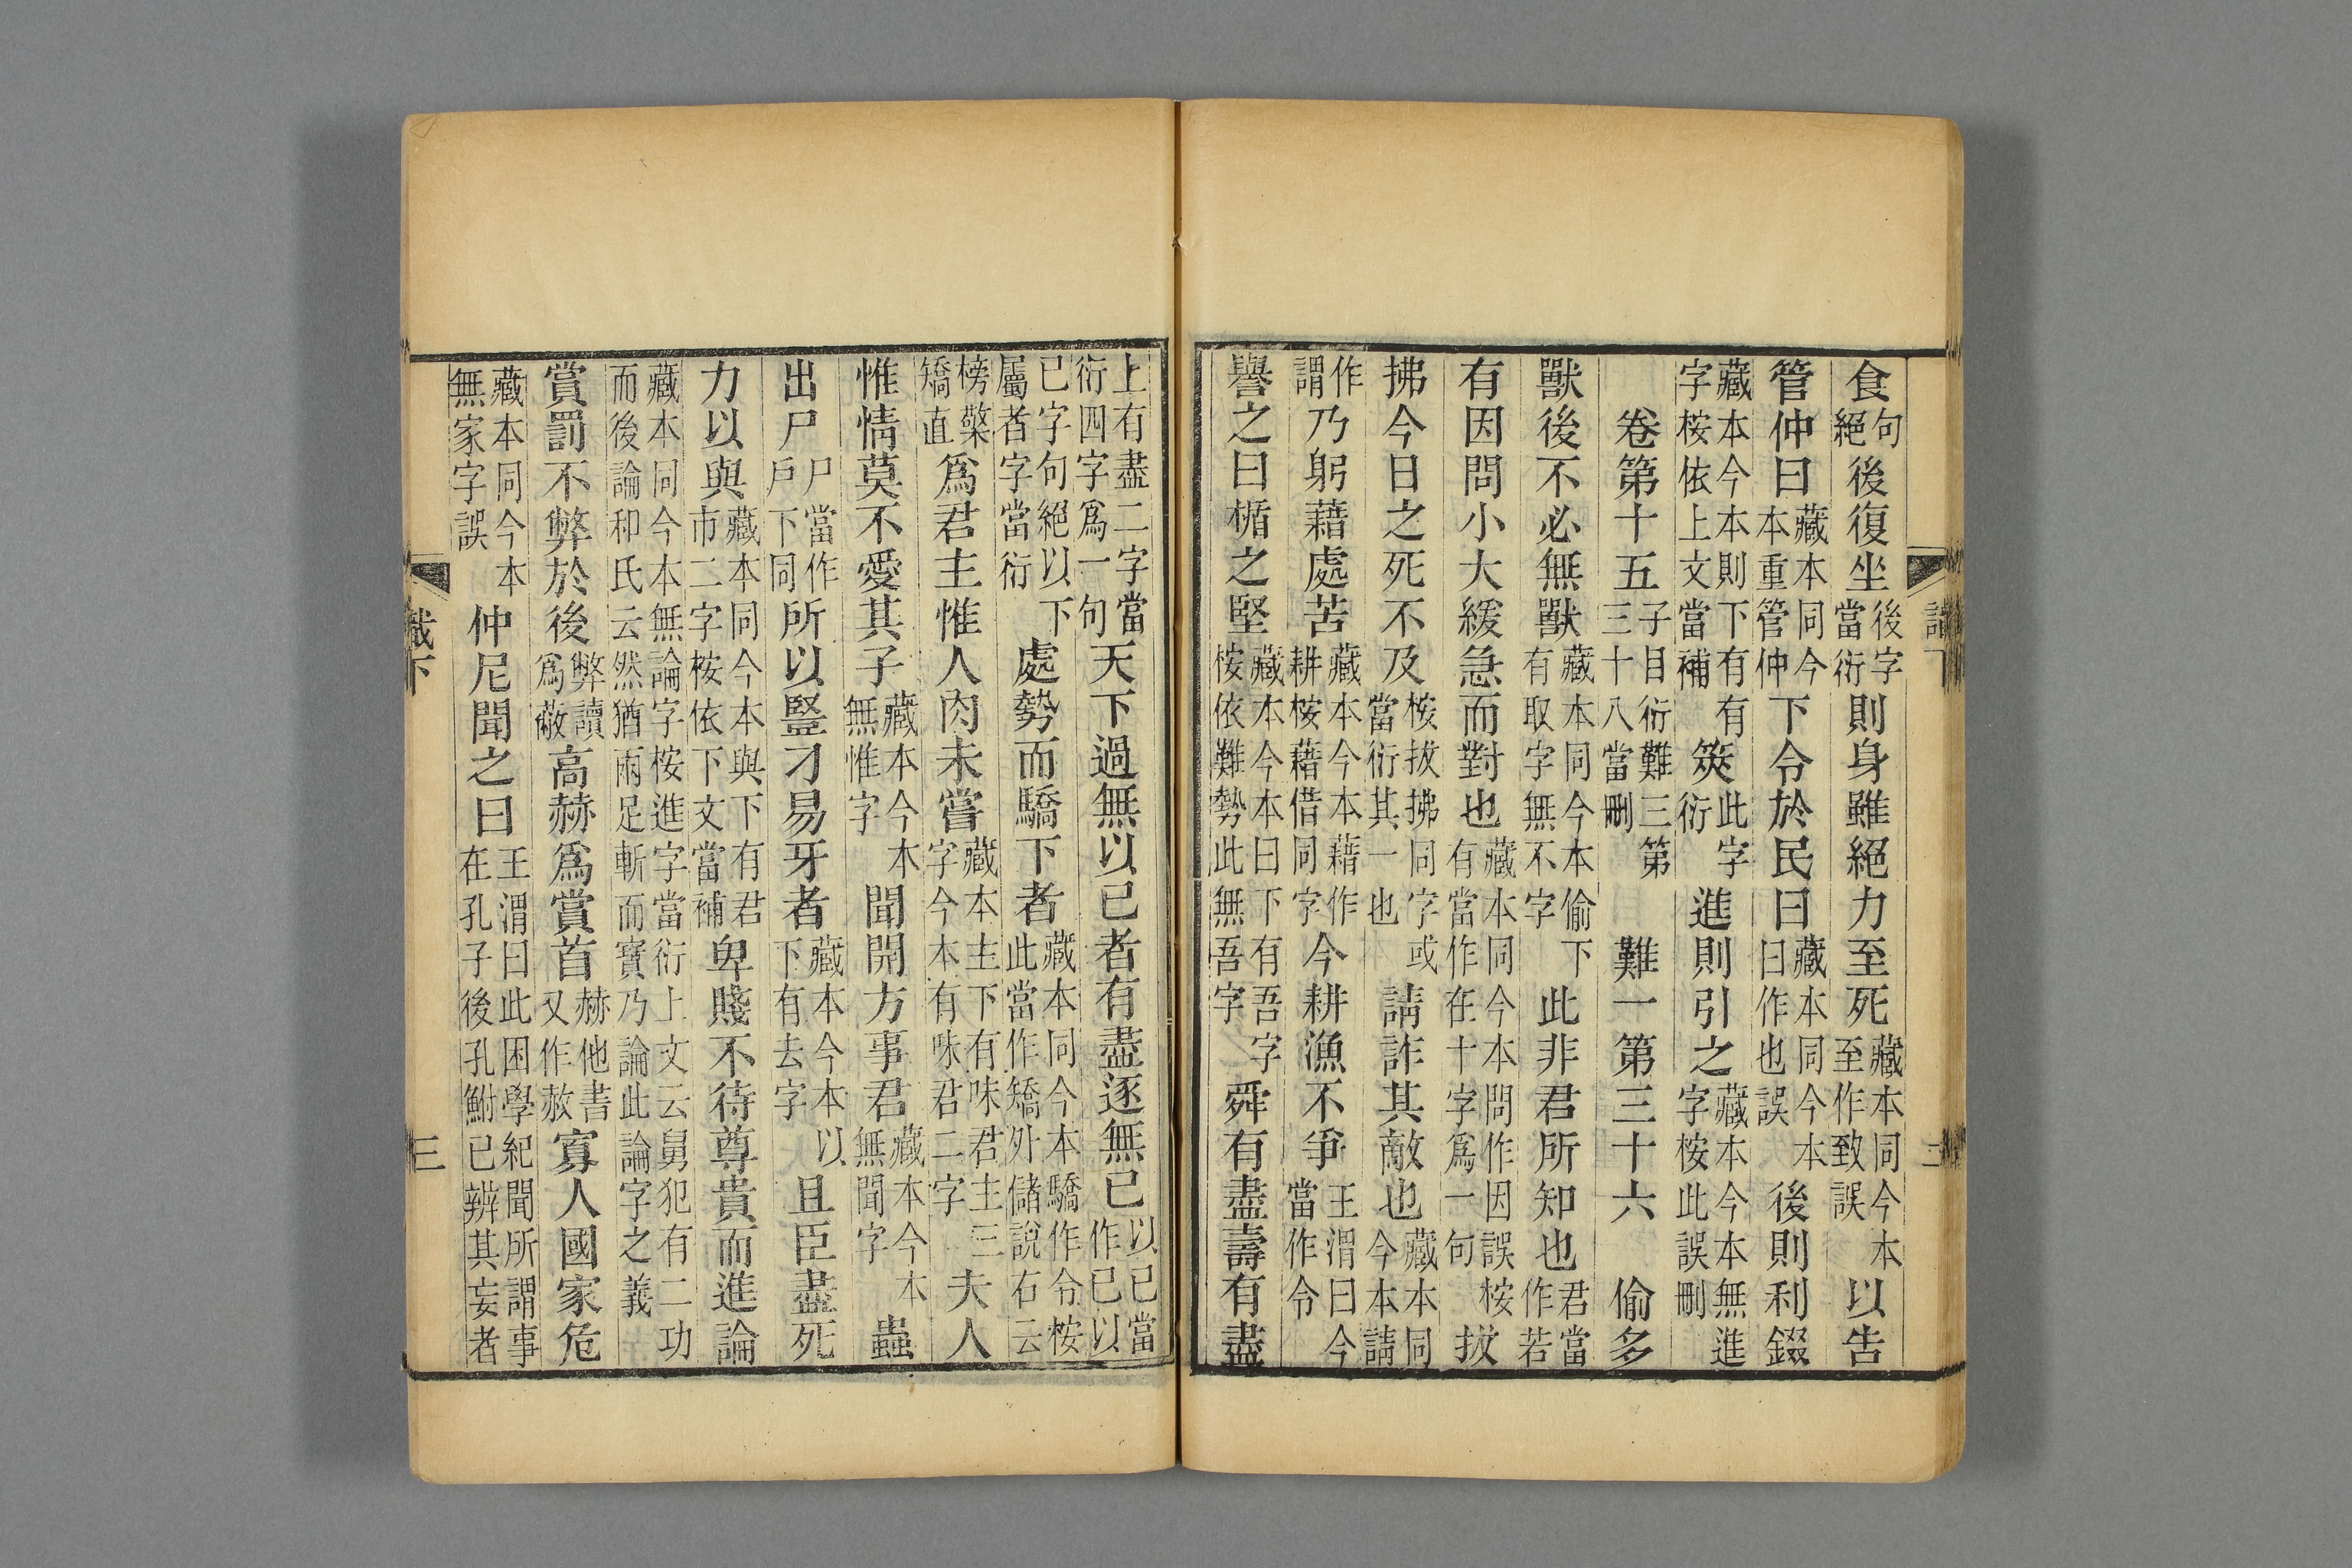 食句絕後復坐後字當衍則身雖絕力至死藏本同今本至作致誤以告
管仲曰藏本同今本重管仲下令於民曰藏本同今本曰作也誤後則利錣
藏本今本則下有有字桉依上文當補筴此字衍進則引之藏本今本無進字桉此誤刪
卷第十五子目衍難三第三十八當刪難一第三十六偷多
獸後不必無獸藏本同今本偷下有取字無不字此非君所知也君當作若
有因問小大緩急而對也藏本同今本問作因誤桉有當作在十字爲一句拔
拂今日之死不及桉拔拂同字或當衍其一也請詐其敵也藏本同今本請
作謂乃躬藉處苦藏本今本藉作耕桉藉借同字今耕漁不爭王渭曰今當作令
譽之曰楯之堅藏本今本曰下有吾字桉依難勢此無吾字舜有盡壽有盡
上有盡二字當衍四字爲一句天下過無以已者有盡逐無已以已當作已以
已字句絕以下屬者字當衍處勢而驕下者藏本同今本驕作令桉此當作矯外儲說右云
榜檠矯直爲君主惟人肉未嘗藏本主下有味君主三字今本有味君二字夫人
惟情莫不愛其子藏本今本無惟字聞開方事君藏本今本無聞字蟲
出尸尸當作戶下同所以豎刁易牙者藏本今本以下有去字且臣盡死
力以與藏本同今本與下有君市二字桉依下文當補卑賤不待尊貴而進論
藏本同今本無論字桉進字當衍上文云舅犯有二功而後論和氏云然猶兩足斬而寶乃論此論字之義
賞罰不弊於後弊讀爲蔽高赫爲賞首赫他書又作赦寡人國家危
藏本同今本無家字誤仲尼聞之曰王渭曰此困學紀聞所謂事在孔子後孔鮒已辨其妄者
識下
三